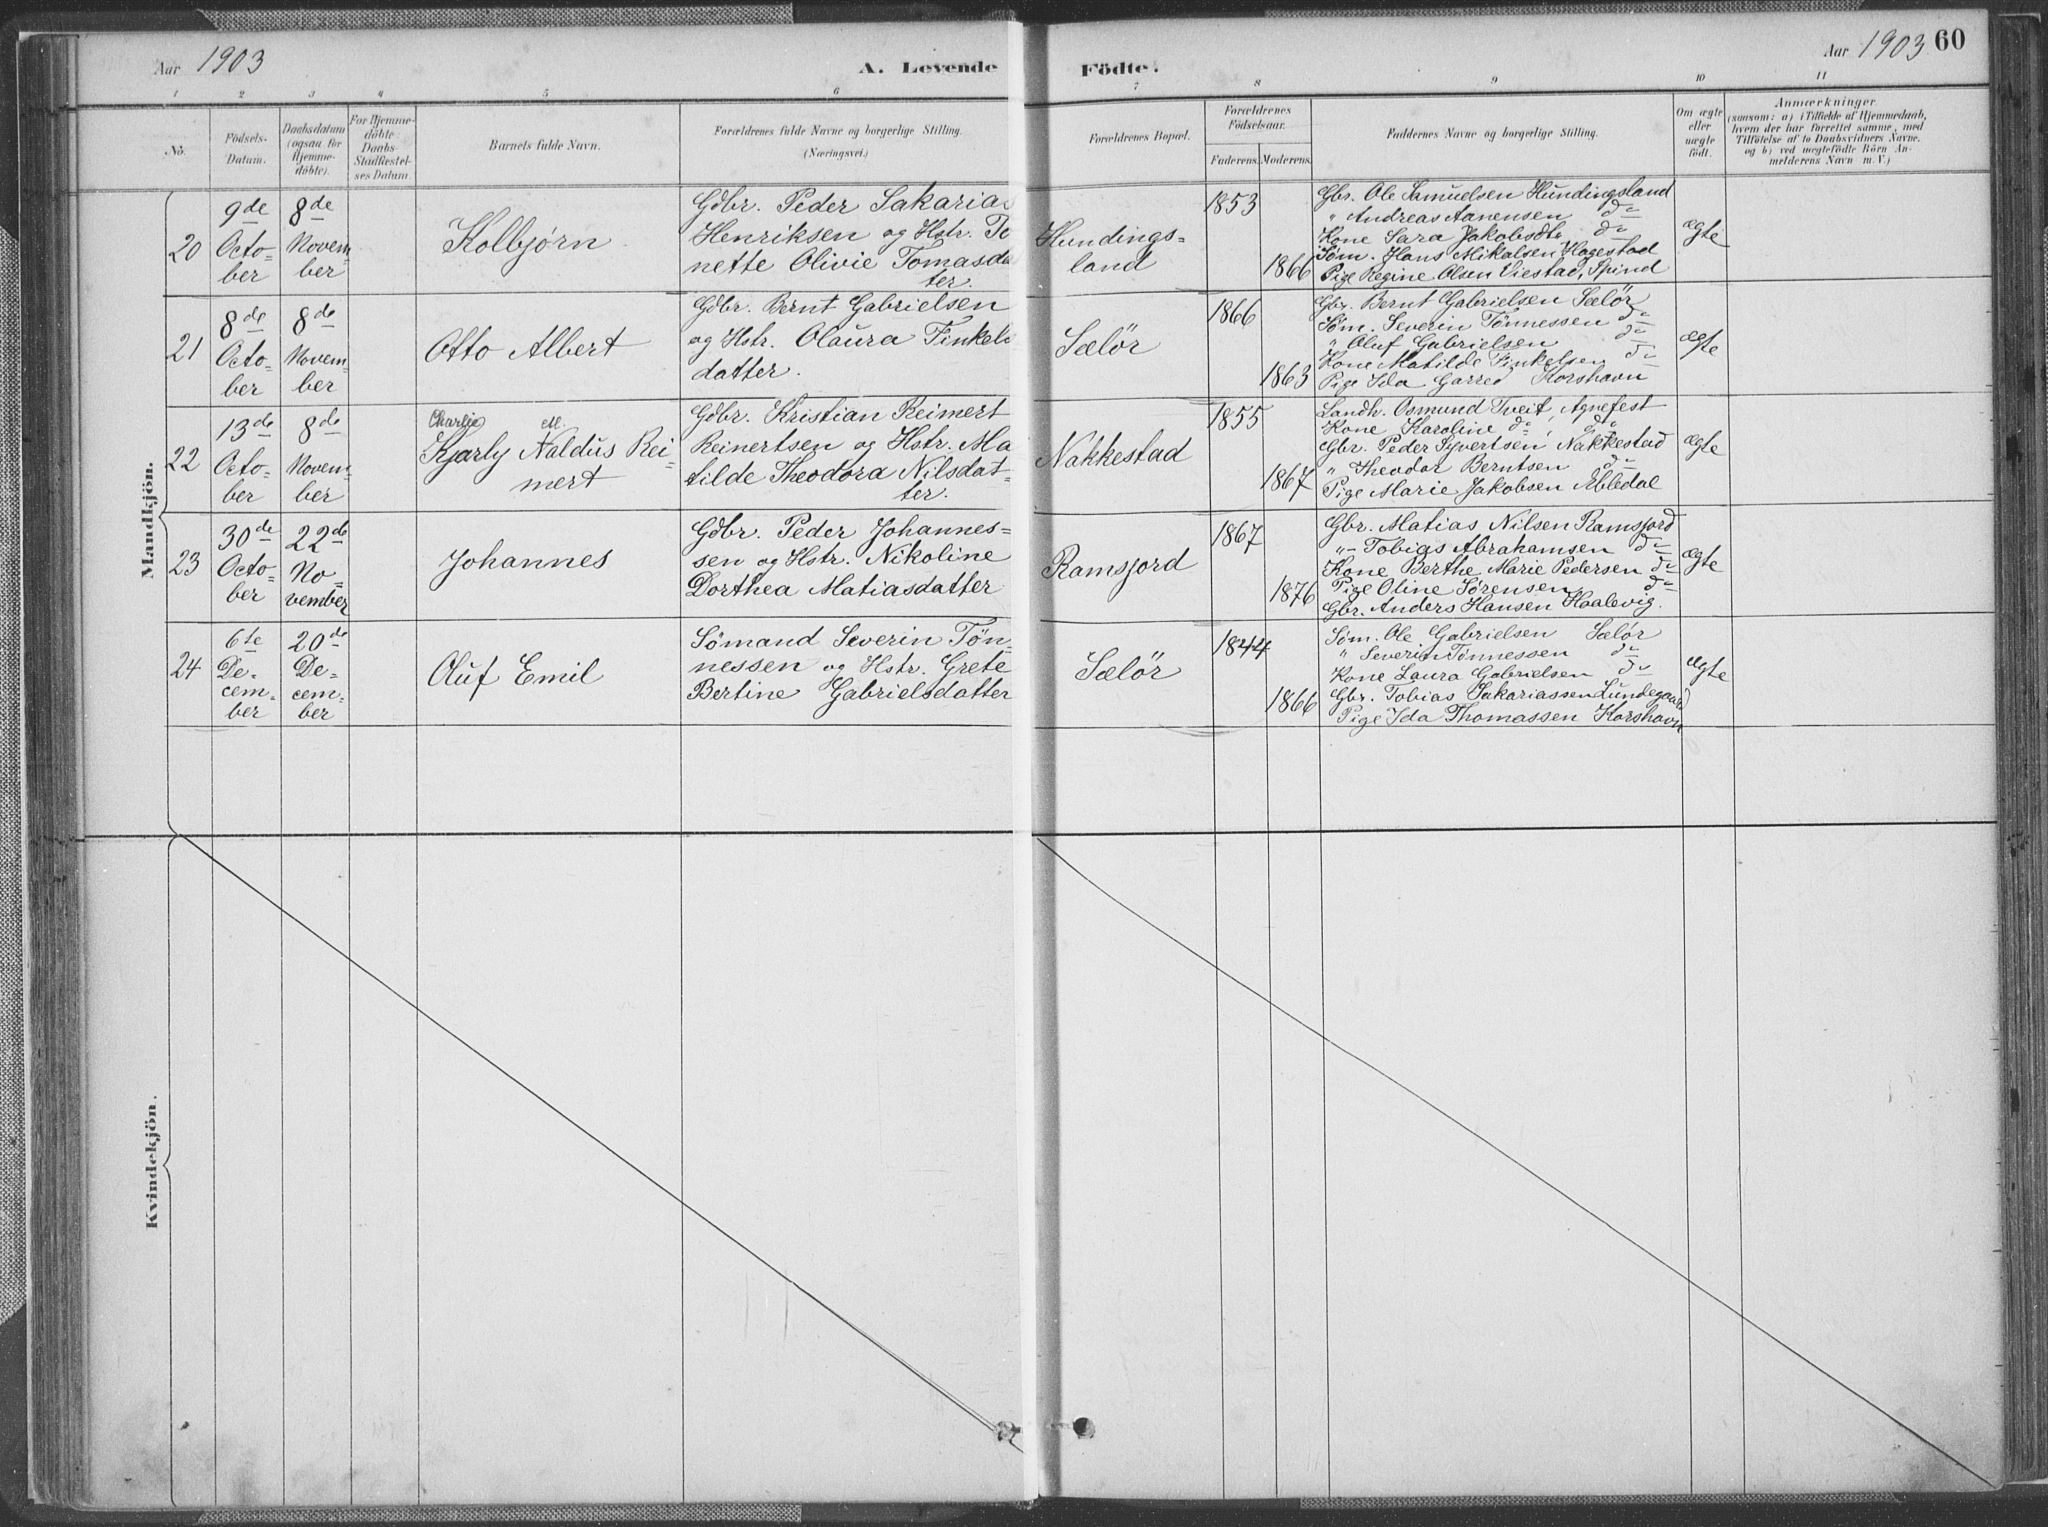 Aar 1903
A. Levende Födte.
Aar 1903. 60
1 2 3 4 5 6 7 8 9 10 11
No.
Födsels-
Datum.
Daabsdatum
(ogsaa for
Hjemme-
döbte).
For Hjemme-
döbte
Daabs-
Stadfæstel-
ses Datum.
Barnets fulde Navn.
Forældrenes fulde Navne og borgerlige Stilling.
(Næringsvei.)
Forældrenes Bopæl.
Forældrenes
Födselsaar.
Faderens. Moderens.
Faddernes Navne og borgerlige Stilling.
Om ægte
eller
uægte
födt.
Anmærkninger
(saasom: a) i Tilfælde af Hjemmedaab,
hvem der har forrettet samme, med
Tilföielse af to Daabsvidners Navne.
og b) ved uægtefödte Börn An-
melderens Navn m. V.)
Mandkjön.
20
9de
Octo-
ber
8de
Novem
ber
Kolbjørn
Gdbr. Peder Sakarias
Henriksen og Hstr. To
nette Olivie Tomasda
ter.
Hundings-
land
1853
1866
Gbr. Ole Samuelsen Hundingsland
" Andreas Aanensen do
Kone Sara Jakobsdtr do
Søm. Hans Mikalsen Hagestad
Pige Regine Olsen Viestad, Spind
ægte
21
8de
Octo-
ber
8de
Novem-
ber
Otto Albert
Gdbr. Bernt Gabrielsen
og Hstr. Olaura Finkels
datter.
Sælör
1866
1863
Gbr. Bernt Gabrielsen Sælör
Søm. Severin Tönnessen do
" Oluf Gabrielsen do
Kone Matilde Finkelsen do
Pige Ida Garred Korshavn
ægte
22
13de
Octo-
ber
8de
Novem-
ber
Charlie M.
Kjarly Naldus Rei-
mert
Gdbr. Kristian Reimert
Reinertsen og Hstr. Ma
tilde Theodora Nilsdat-
ter.
Nakkestad
1855
1867
Landh. Osmund Tveit, Agnefest
Kone Karoline do, do
Gbr. Peder Syvertsen Nakkestad
" Theodor Berntsen do
Pige Marie Jakobsen Æbledal
ægte
23
30de
Octo-
ber
22de
No-
vember
Johannes
Gdbr. Peder Johannes-
sen og Hstr. Nikoline
Dorthea Matiasdatter
Ramsjord
1867
1876
Gbr. Matias Nilsen Ramsjord
"- Tobias Abrahamsen do
Kone Berthe Marie Pedersen do
Pige Oline Sørensen do
Gbr. Anders Hansen Haalevig.
ægte
24
6te
De-
cem-
ber
20de
De-
cem-
ber
Oluf Emil
Sömand Severin Tøn-
nessen og Hstr. Grete
Bertine Gabrielsdatter
Sælör
1844
1866
Søm. Ole Gabrielsen Sælör
" Severin Tønnessen do
Kone Laura Gabrielsen do
Gbr. Tobias Sakariassen Lundegaard
Pige Ida Thomassen Korshavn
ægte
Kvindekjön.